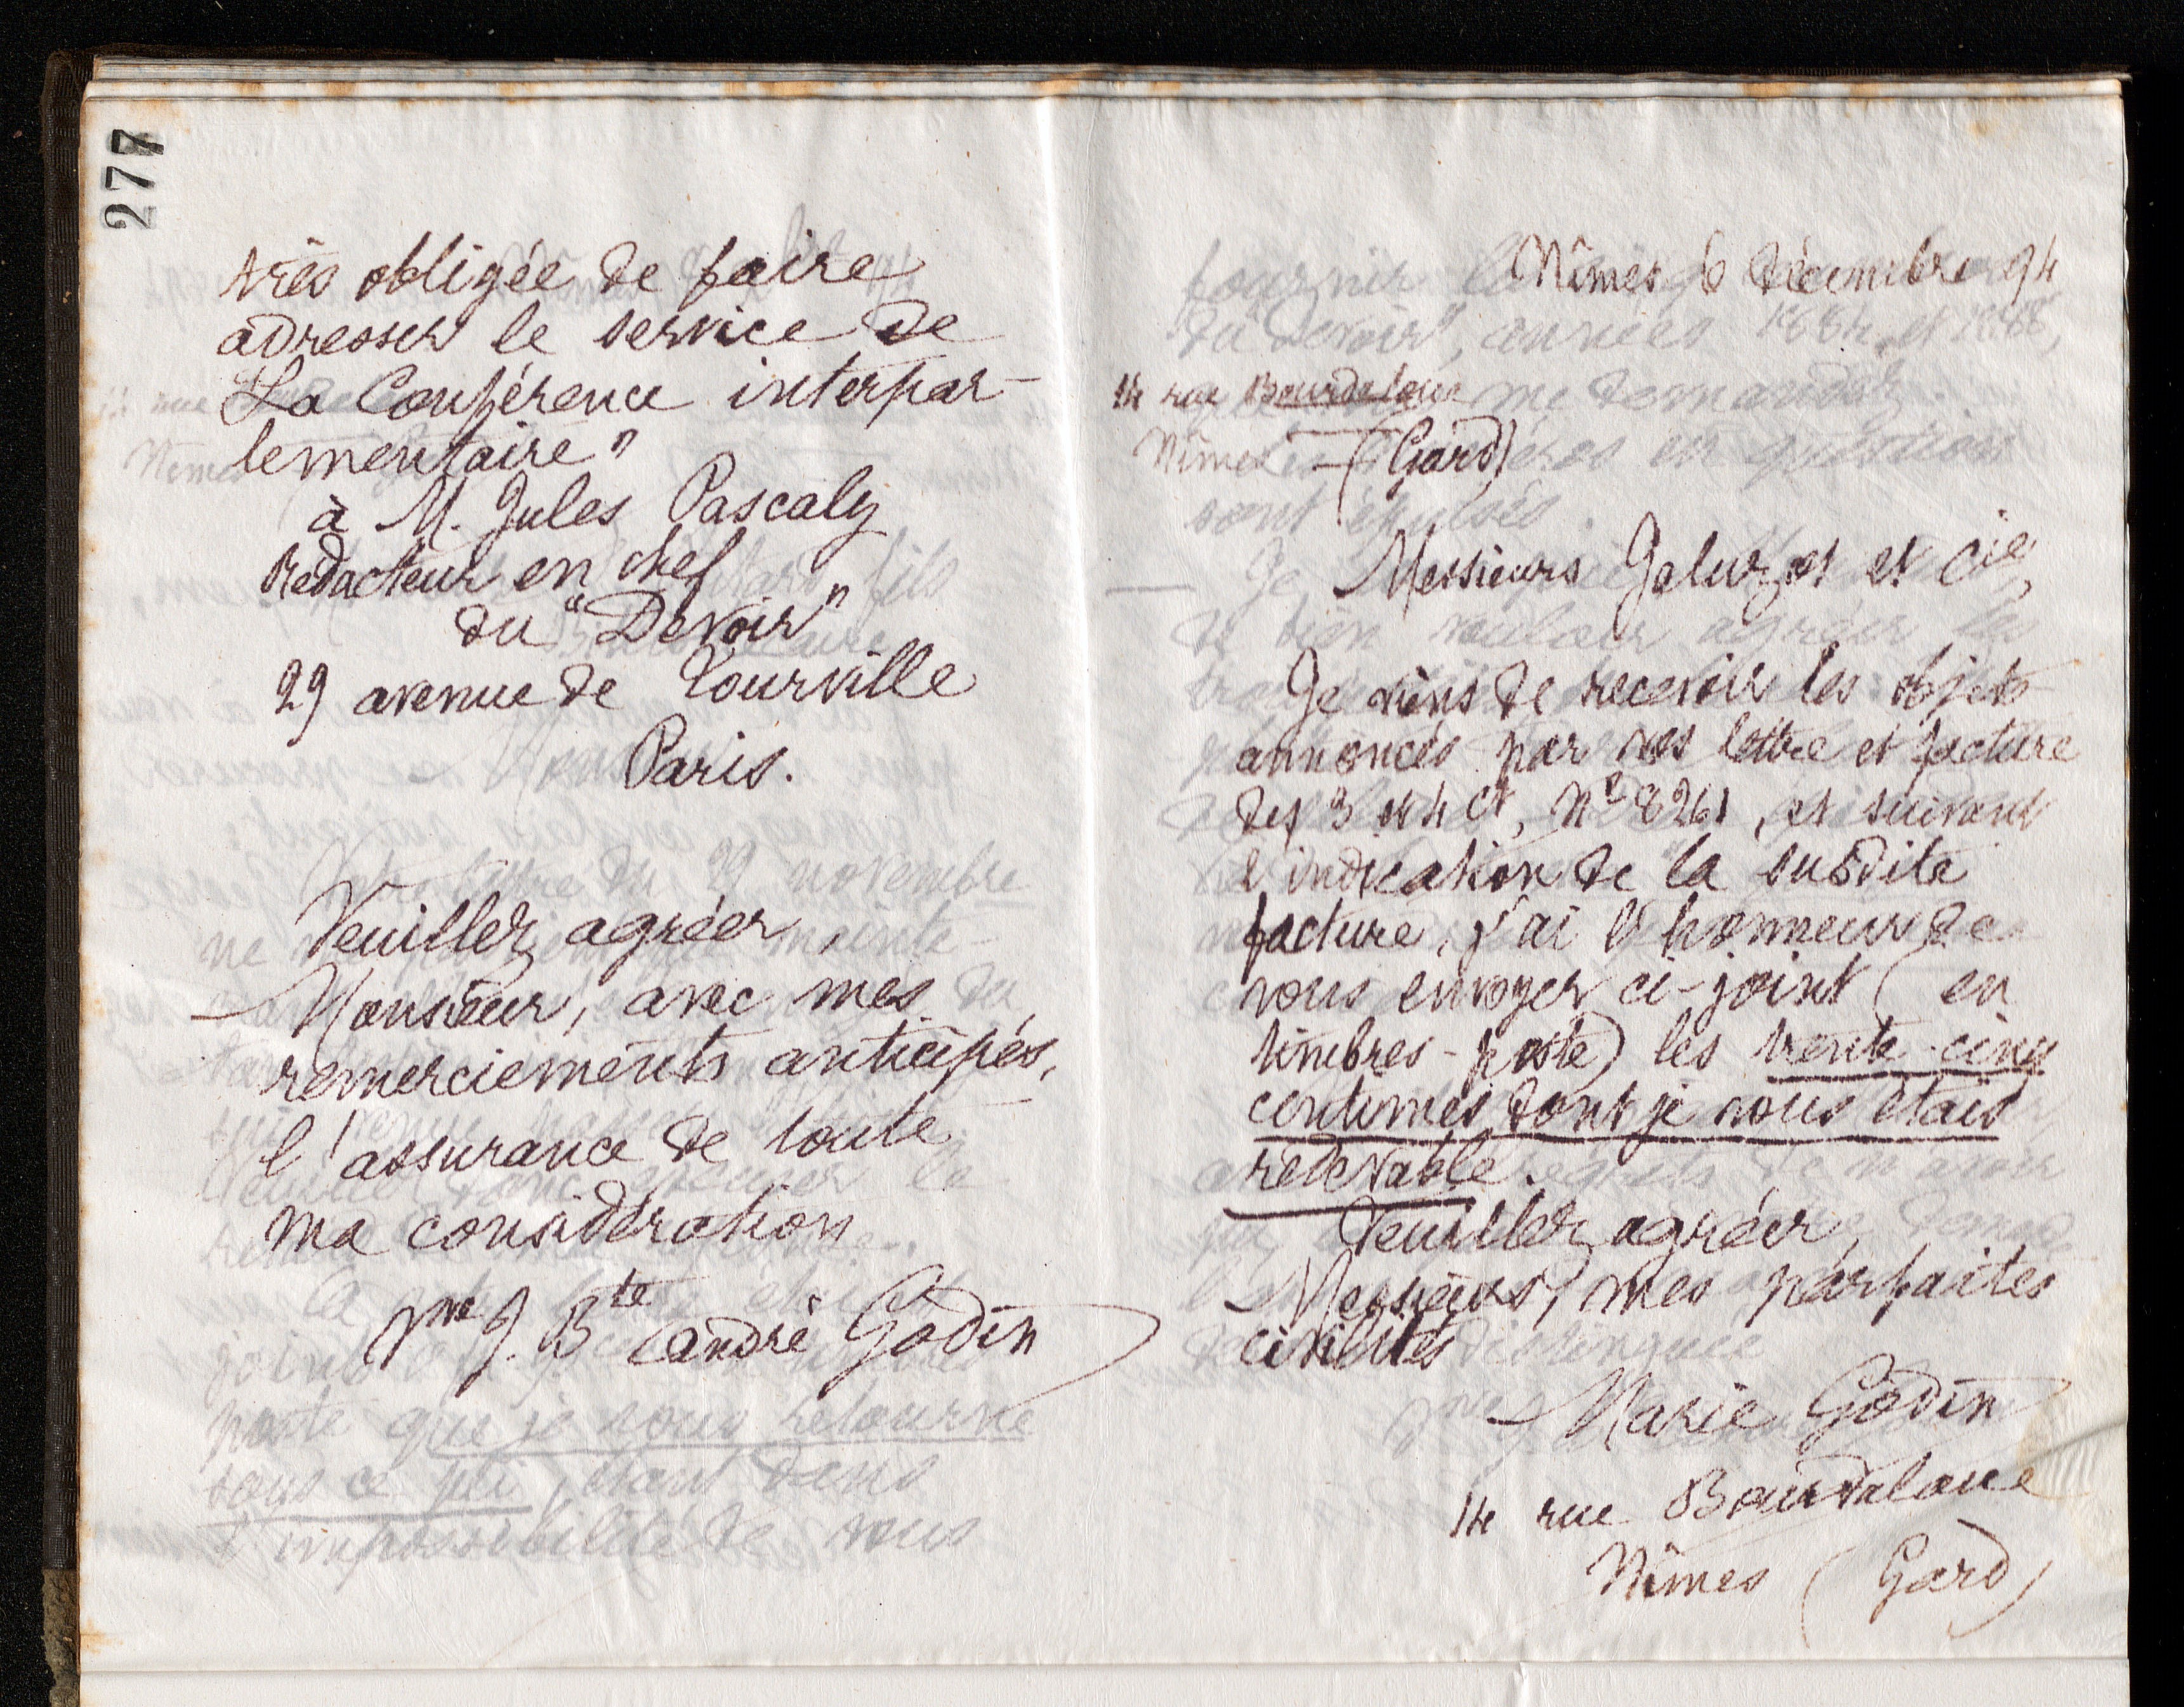 277
très obligée de faire
adresser le service de
"La Conférence interpar-
lementaire"
à M. Jules Pascaly
rédacteur en chef
du "Devoir"
29 avenue de Tourville
Paris.
Veuillez agréer
Monsieur, avec mes
remerciements anticipés,
l'assurance de toute
ma considération
Vve J. Bte André Godin
Nîmes 6 Décembre 94
14 rue Bourdaloue
Nîmes (Gard)
Messieurs et Cie,
Je viens de recevoir les objets
annoncés par vos lettre et facture
des 3 et 4 ct, No 8261, et suivant
l'indication de la susdite
facture, j'ai l'honneur de
vous envoyer ci-joint (en
timbres-poste) les trente-cinq
centimes dont je vous étais
redevable.
Veuillez agréer,
Messieurs, mes parfaites
civilités
Marie Godin
14 rue Bourdaloue
Nîmes (Gard)